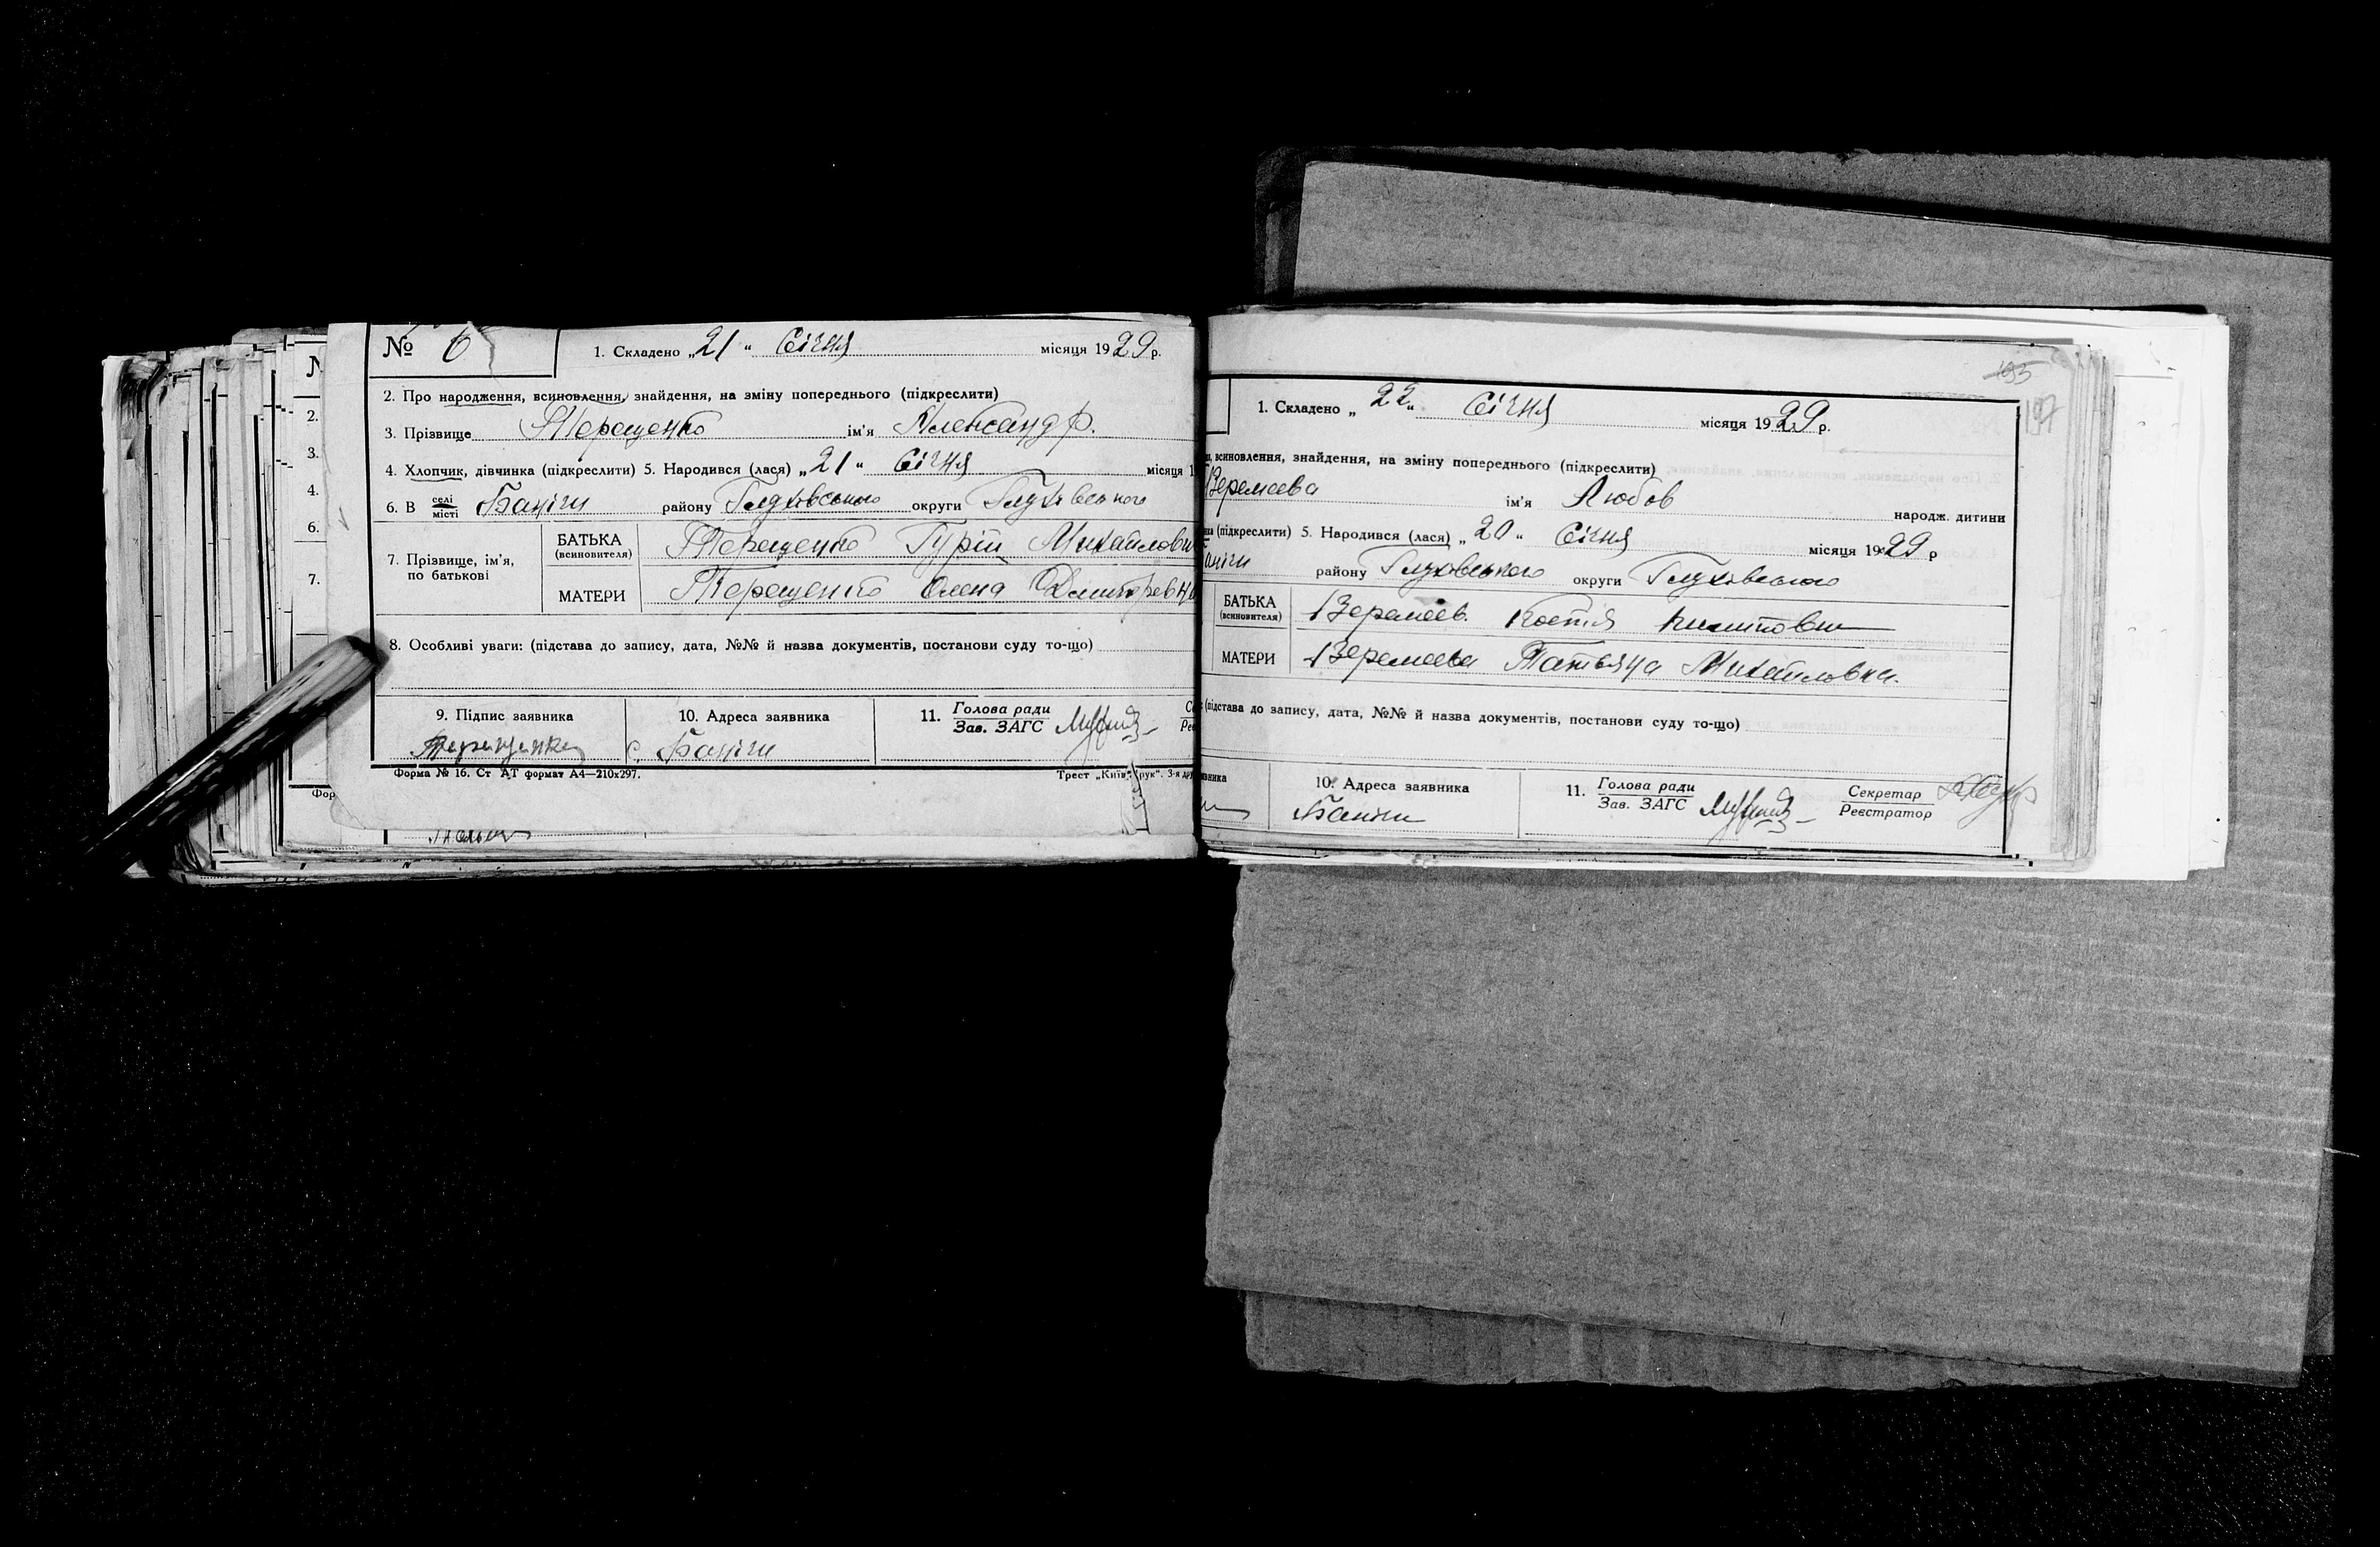 № 6
1. Складено „21" Січня місяця 1929 р.
2. Про народження, всиновлення, знайдення, на зміну попереднього (підкреслити)
3. Прізвище Терещенко ім'я Александр.
4. Хлопчик, дівчинка (підкреслити) 5. Народився (лася) „21" Січня місяця 1
6. В селі місті Баничи району Глухівського округи Глухівського
7. Прізвище, ім'я, по батькові
БАТЬКА (всиновителя) Терещенко Гурій Михайлович
МАТЕРИ Терещенко Олена Дмитревна
8. Особливі уваги: (підстава до запису, дата, №№ й назва документів, постанови суду то-що)
9. Підпис заявника
10. Адреса заявника
11. Голова ради
Зав. ЗАГС
Терещенко
с. Баничи
Форма № 16. Ст АТ формат А4—210х297.
Трест „Київ-Друк". 3-я
№
2.
3.
4.
6.
7.
Фор
195
197
1. Складено „22" Січня місяця 1929 р.
всиновлення, знайдення, на зміну попереднього (підкреслити)
Веремеева ім'я Любов народж. дитини
(підкреслити) 5. Народився (лася) „20" Січня місяця 1929 р
аничи району Глухівського округи Глухівського
БАТЬКА (всиновителя) Веремеев. Костя
МАТЕРИ Веремеева Татьяна Михайловна.
(підстава до запису, дата, №№ й назва документів, постанови суду то-що)
10. Адреса заявника
11. Голова ради
Зав. ЗАГС
Секретар
Реєстратор
Баничи